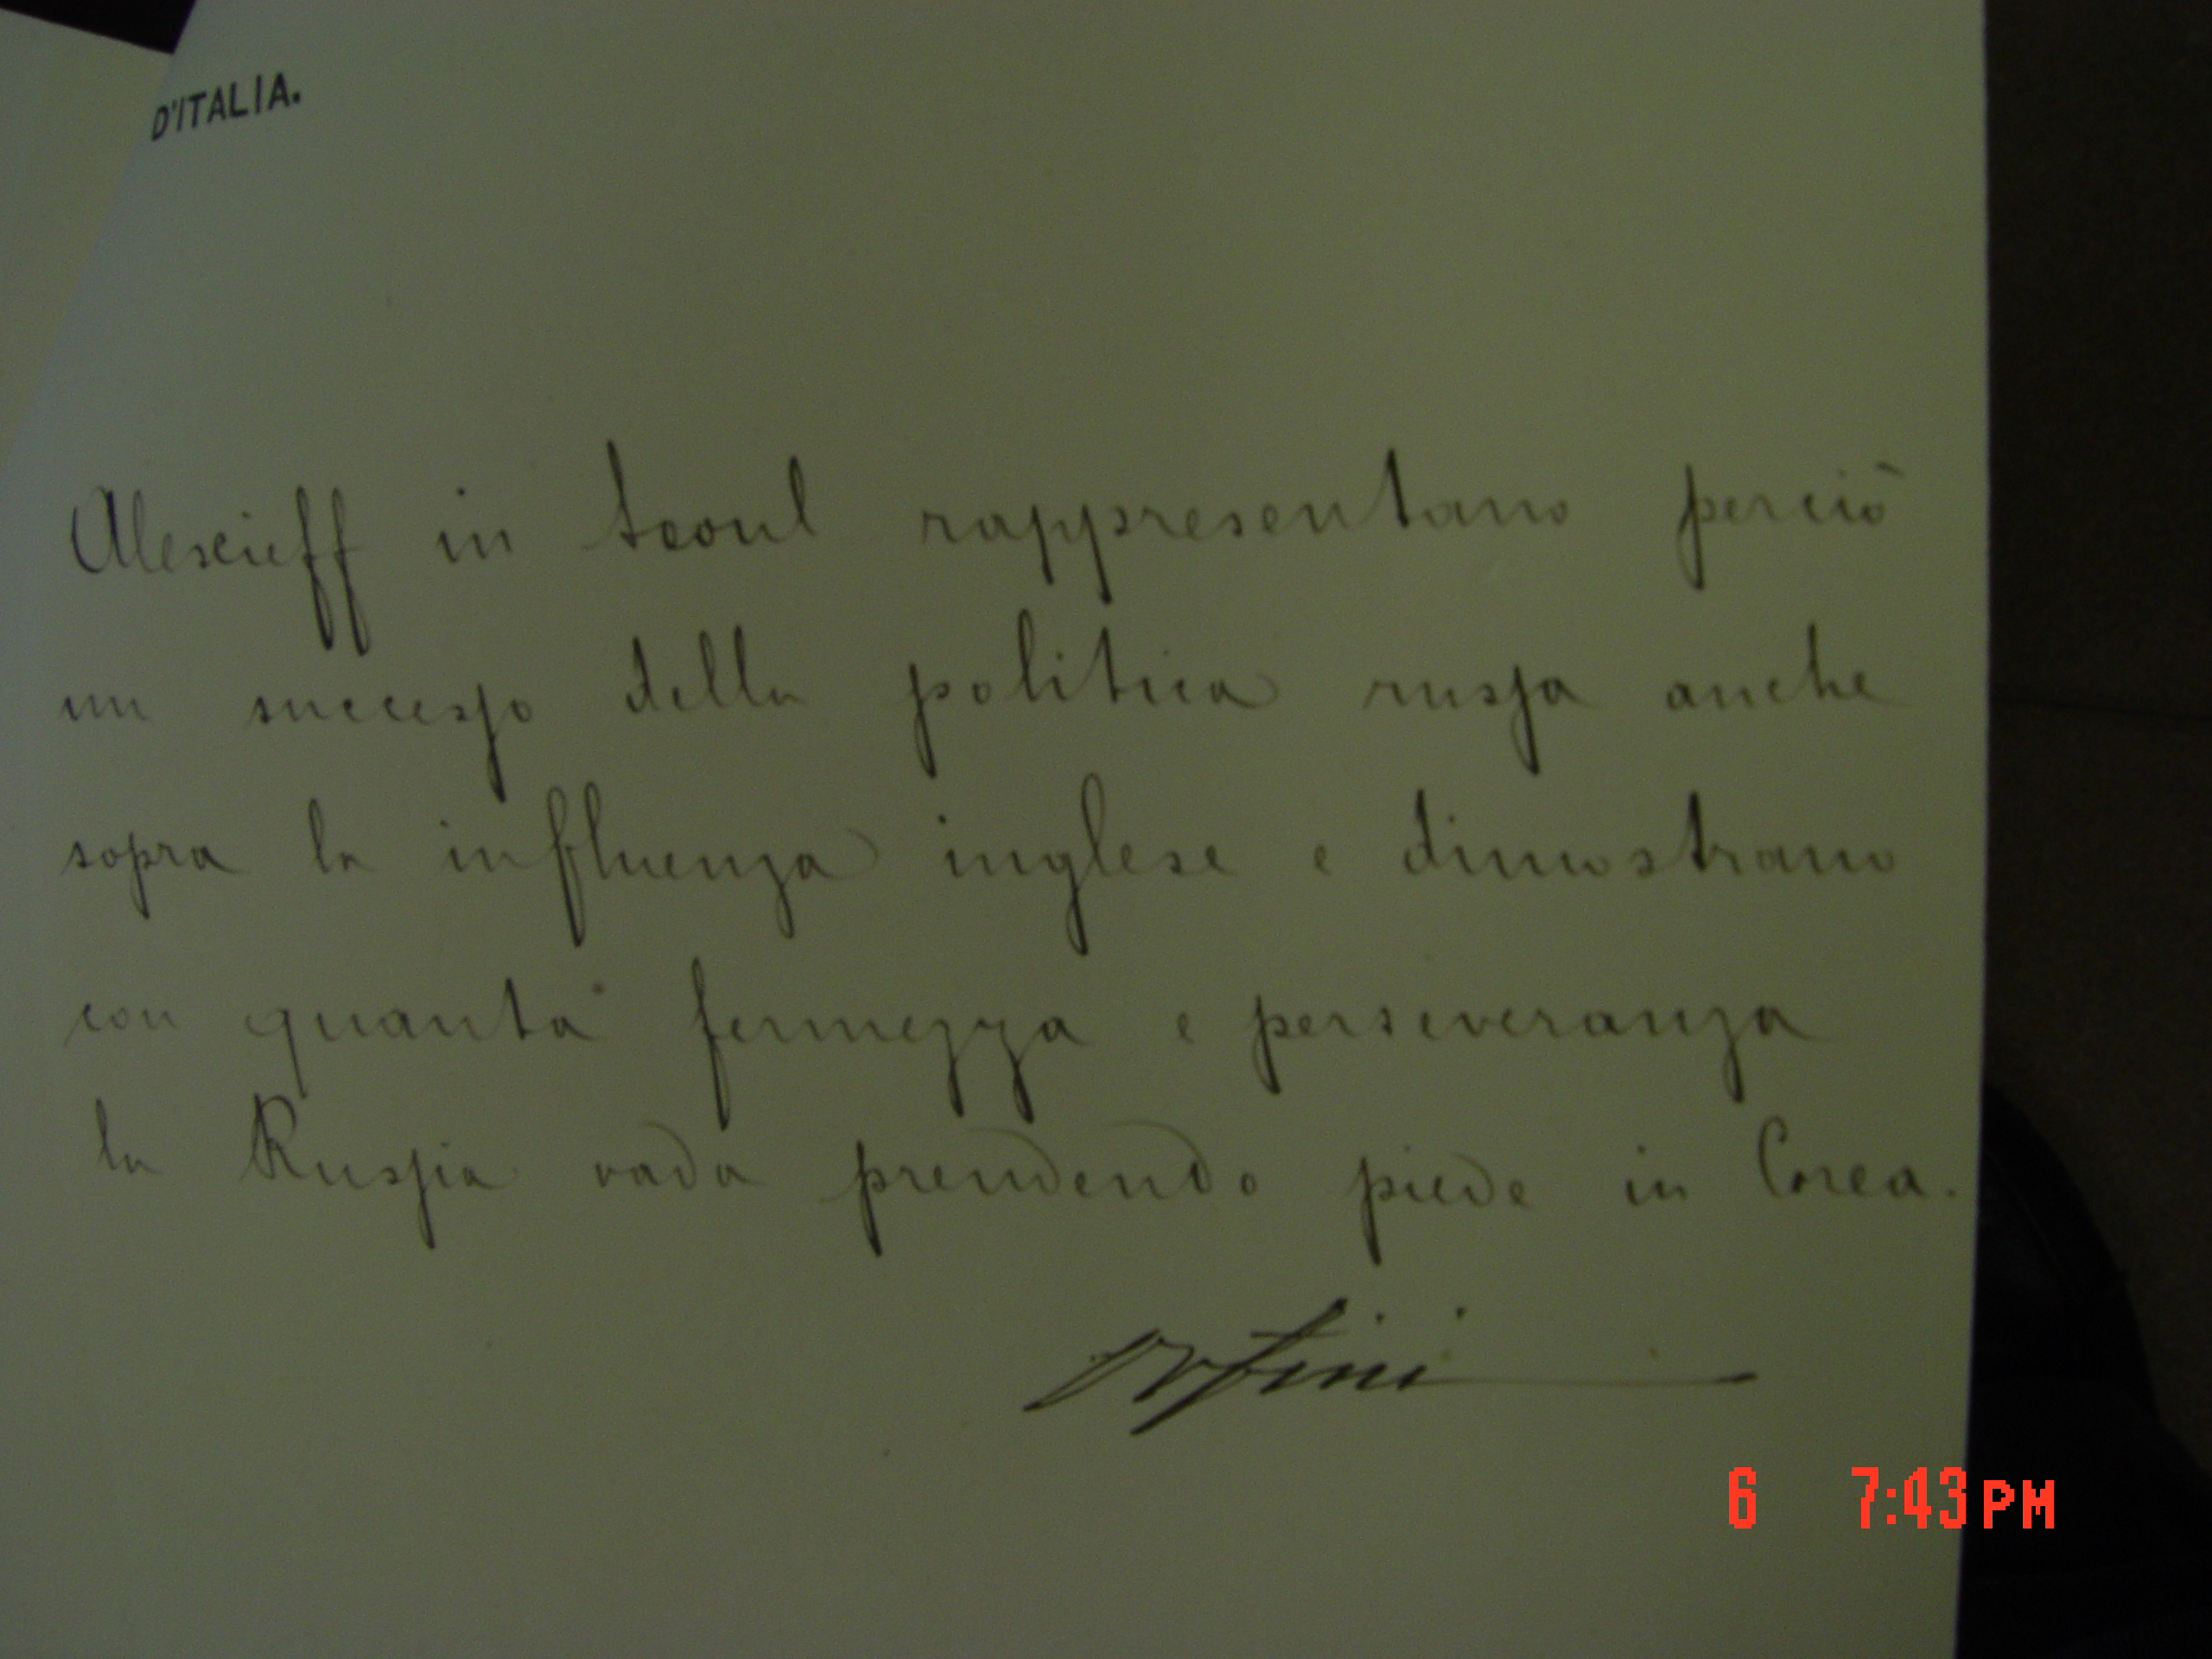 D'ITALIA.
Alexieff in Seoul rappresentano perciò
un successo della politica russa anche
sopra la influenza inglese e dimostrano
con quanta fermezza e perseveranza
la Russia vada prendendo piede in Corea.
Orfini
6 7:43 PM